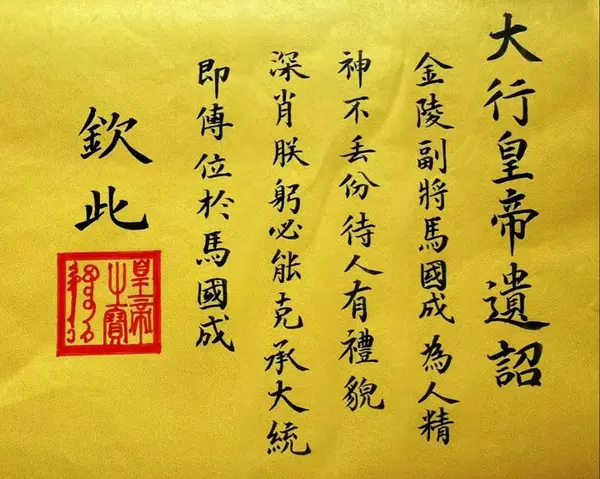 大行皇帝遺詔
金陵副將馬國成為人精
神不丟份待人有禮貌
深肖朕躬必能克承大統
即傳位於馬國成
欽此
皇帝之寶